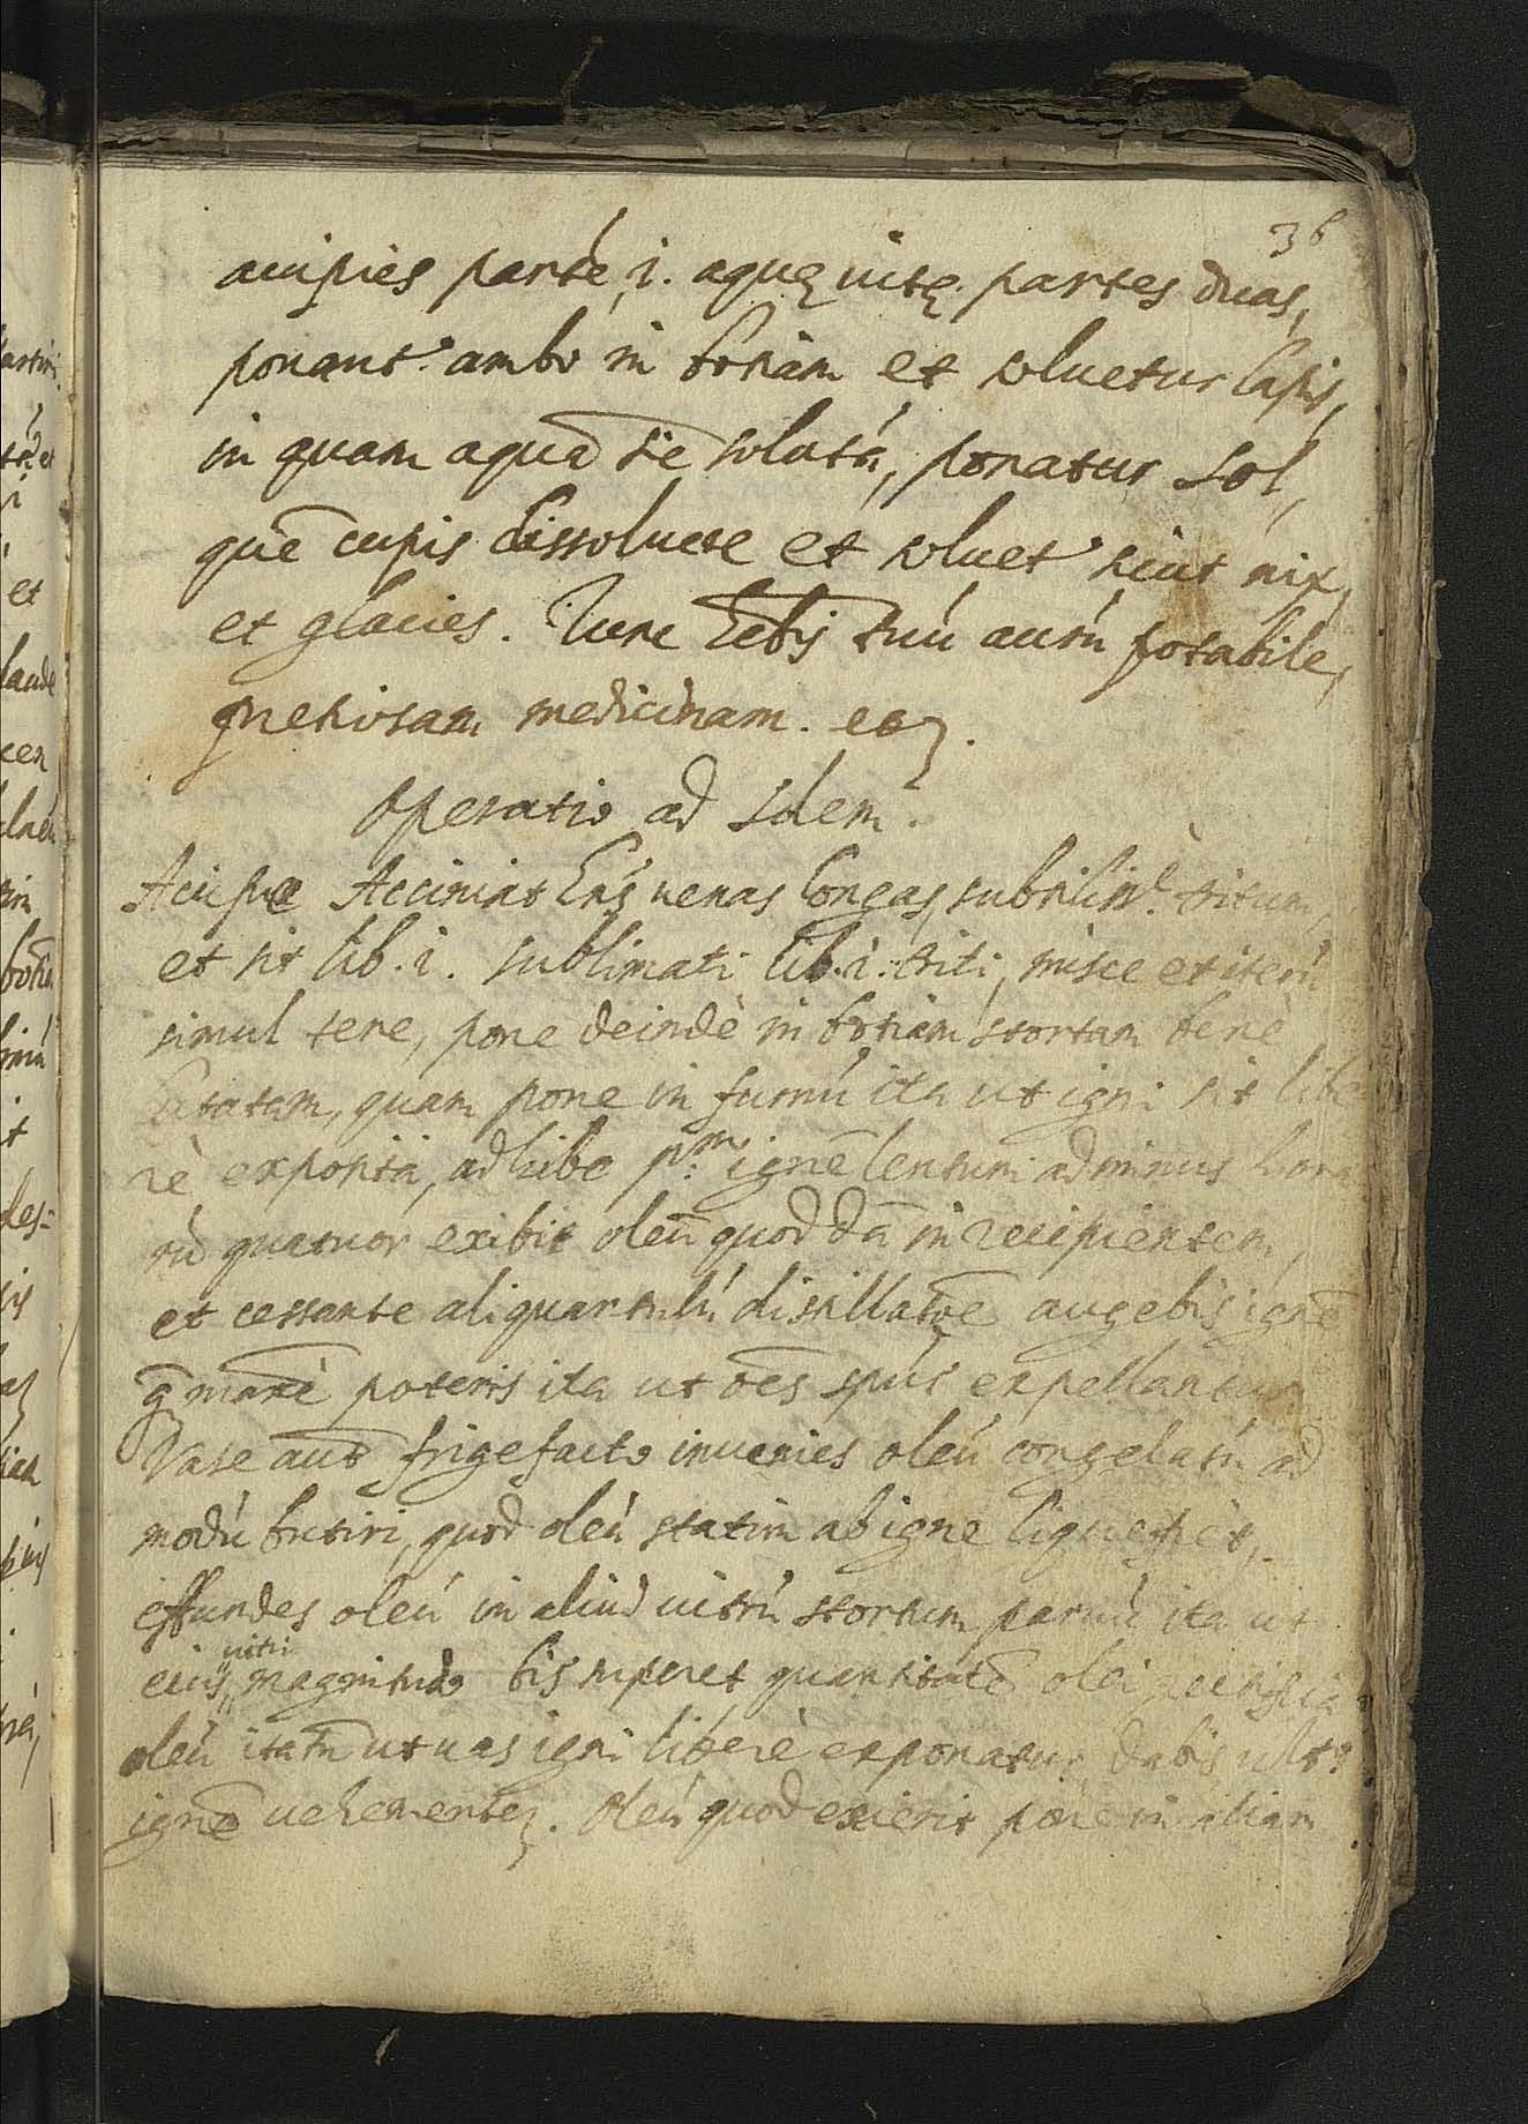 36
accipies partē i. aquę vitę. partes duas,
ponant.r ambo in botiam et soluetur lapis,
in quam aquā sic solutā, ponatur sol,
quē cupis dissoluere et soluet.r sicut nix,
et glacies. Tunc hēbis tuū aurū potabile,
pretiosam medicinam. etz.
Operatio ad solem.
Accipe hēns uenas longas, subtiliss.e tritum,
et sit lib. i. sublimati lib. i. triti, misce et iterū
simul tere, pone deindè in botiam stortam benè
lutatam, quam pone in furnū ita ut igni sit libe
rè exposita, adhibe p.m ignē lentum adminus hora
rū quatuor exibit oleū quoddā in recipientem,
et cessante aliquantulū distillatiōe augebis ignē
q̄ poteris ita ut oēs spūs expellantur
Vase aut̄ frigefacto inuenies oleū congelatū ad
modū butiri, quod oleū statim ab igne liquefiet,
effundes oleū in aliud uitrū stortum paruū ita ut
eius uitri magnitudo bis superet quantitatē olei,
oleū itatn̄ ut uas igni liberè exponatur dabis ult.o
ignē uehementez. Oleū quod exierit pone in aliam